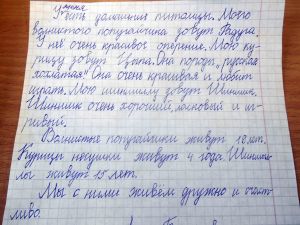 У меня
есть домашние питомцы. Моего
волнистого попугайчика зовут Радуга.
У неё очень красивое оперение. Мою ку-
рицу зовут Цыпа. Она породы "русская
хохлатая". Она очень красивая и любит
играть. Мою шиншиллу зовут Шиншик.
Шиншик очень хороший, ласковый и иг-
ривый.
Волнистые попугайчики живут 10 лет.
Курицы несушки живут 4 года. Шиншил-
лы живут 15 лет.
Мы с ними живём дружно и счаст-
ливо.